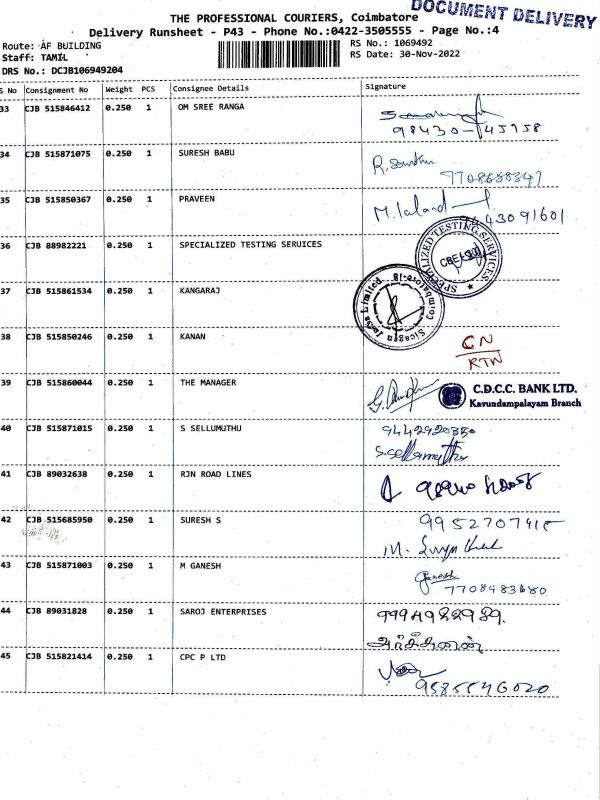 DOCUMENT DELIVERY
THE PROFESSIONAL COURIERS, Coimbatore
Delivery Runsheet - P43 - Phone No.:0422-3505555 - Page No.:4
Route: AF BUILDING
RS No.: 1069492
Staff: TAMIL
RS Date: 30-Nov-2022
DRS No.: DCJB106949204
S No Consignment No Weight PCS Consignee Details Signature
33 CJB 515846412 0.250 1 OM SREE RANGA
98430-45758
34 CJB 515871075 0.250 1 SURESH BABU
7708688347
35 CJB 515850367 0.250 1 PRAVEEN
43091601
36 CJB 88982221 0.250 1 SPECIALIZED TESTING SERUICES
SPECIALIZED TESTING SERVICES
37 CJB 515861534 0.250 1 KANGARAJ
Sicagen India Limited Coimbatore-18
38 CJB 515850246 0.250 1 KANAN
CN
RTN
39 CJB 515860044 0.250 1 THE MANAGER
C.D.C.C. BANK LTD.
Kavundampalayam Branch
40 CJB 515871015 0.250 1 S SELLUMUTHU
9442920350
S.Sellamuthu
41 CJB 89032638 0.250 1 RJN ROAD LINES
42 CJB 515685950 0.250 1 SURESH S
9952707415
43 CJB 515871003 0.250 1 M GANESH
Ganesh
7708983680
44 CJB 89031828 0.250 1 SAROJ ENTERPRISES
9994922989.
45 CJB 515821414 0.250 1 CPC P LTD